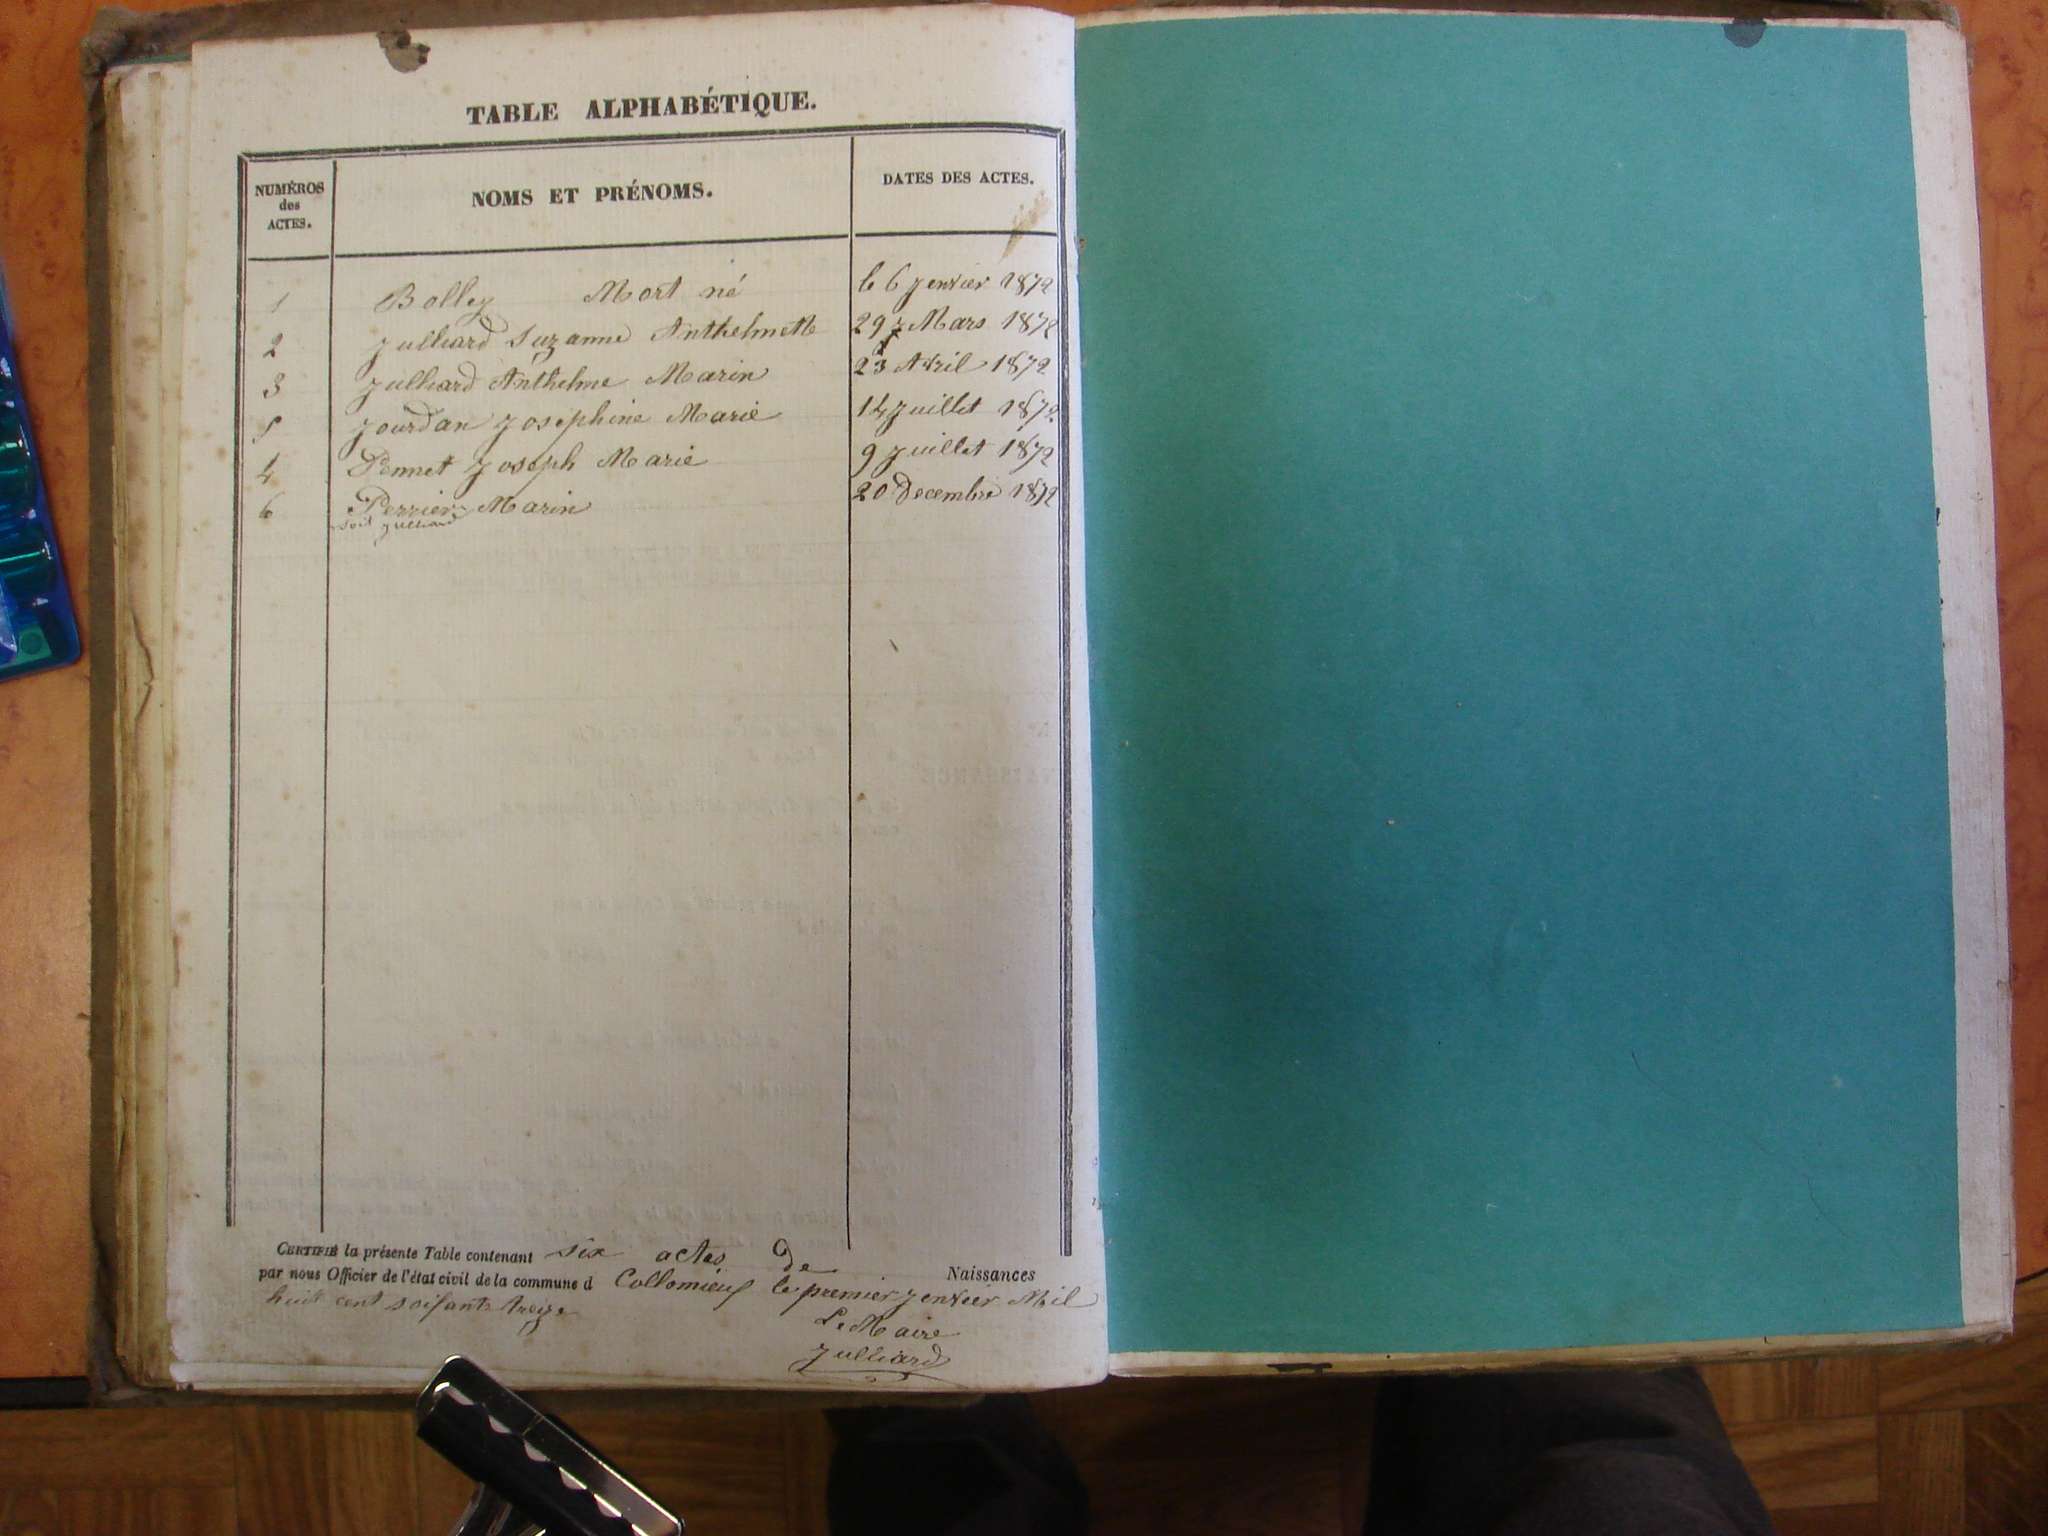 TABLE ALPHABÉTIQUE.
NUMÉROS
des
ACTES.
NOMS ET PRÉNOMS.
DATES DES ACTES.
1 Bolley Mort né le 6 Jenvier 1872
2 Julliard Suzanne Anthelmette 29 Mars 1872
3 Julliard Anthelme Marin 23 Avril 1872
5 Jourdan Josephine Marie 14 Juillet 1872
4 Pennet Joseph Marie 9 Juillet 1872
6 Perrier Marin 20 Decembre 1872
soit Julliard
CERTIFIÉ la présente Table contenant six actes de Naissances
par nous Officier de l'état civil de la commune d Collomieux le premier Jenvier Mil
huit cent soisante treize
Le Maire
Julliard